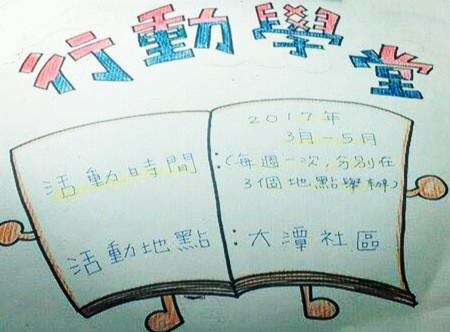 行動學堂
2017年
3月-5月
活動時間:(每週一次,分別在
3個地點舉辦)
活動地點:大潭社區